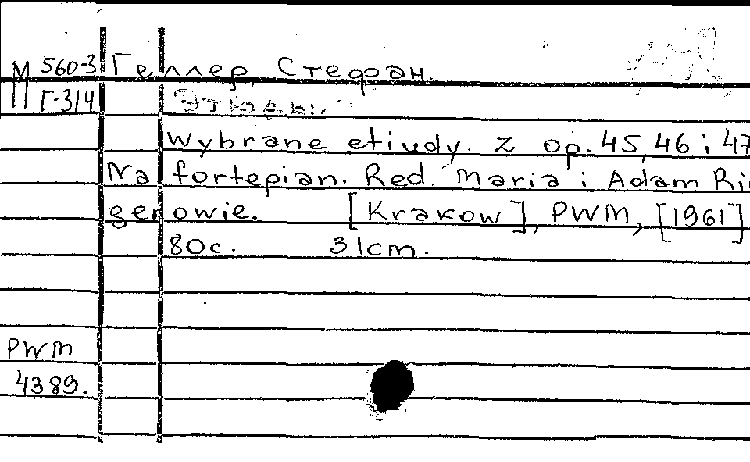 М 560-3 Геллер, Стефан.
Г-314 Этюды.
Wybrane etiudy. z op. 45, 46 i 47
Na fortepian. Red. Maria i Adam Rie
gerowie. [Krakow], PWM, [1961]
80с. 31cm.
PWM
4389.